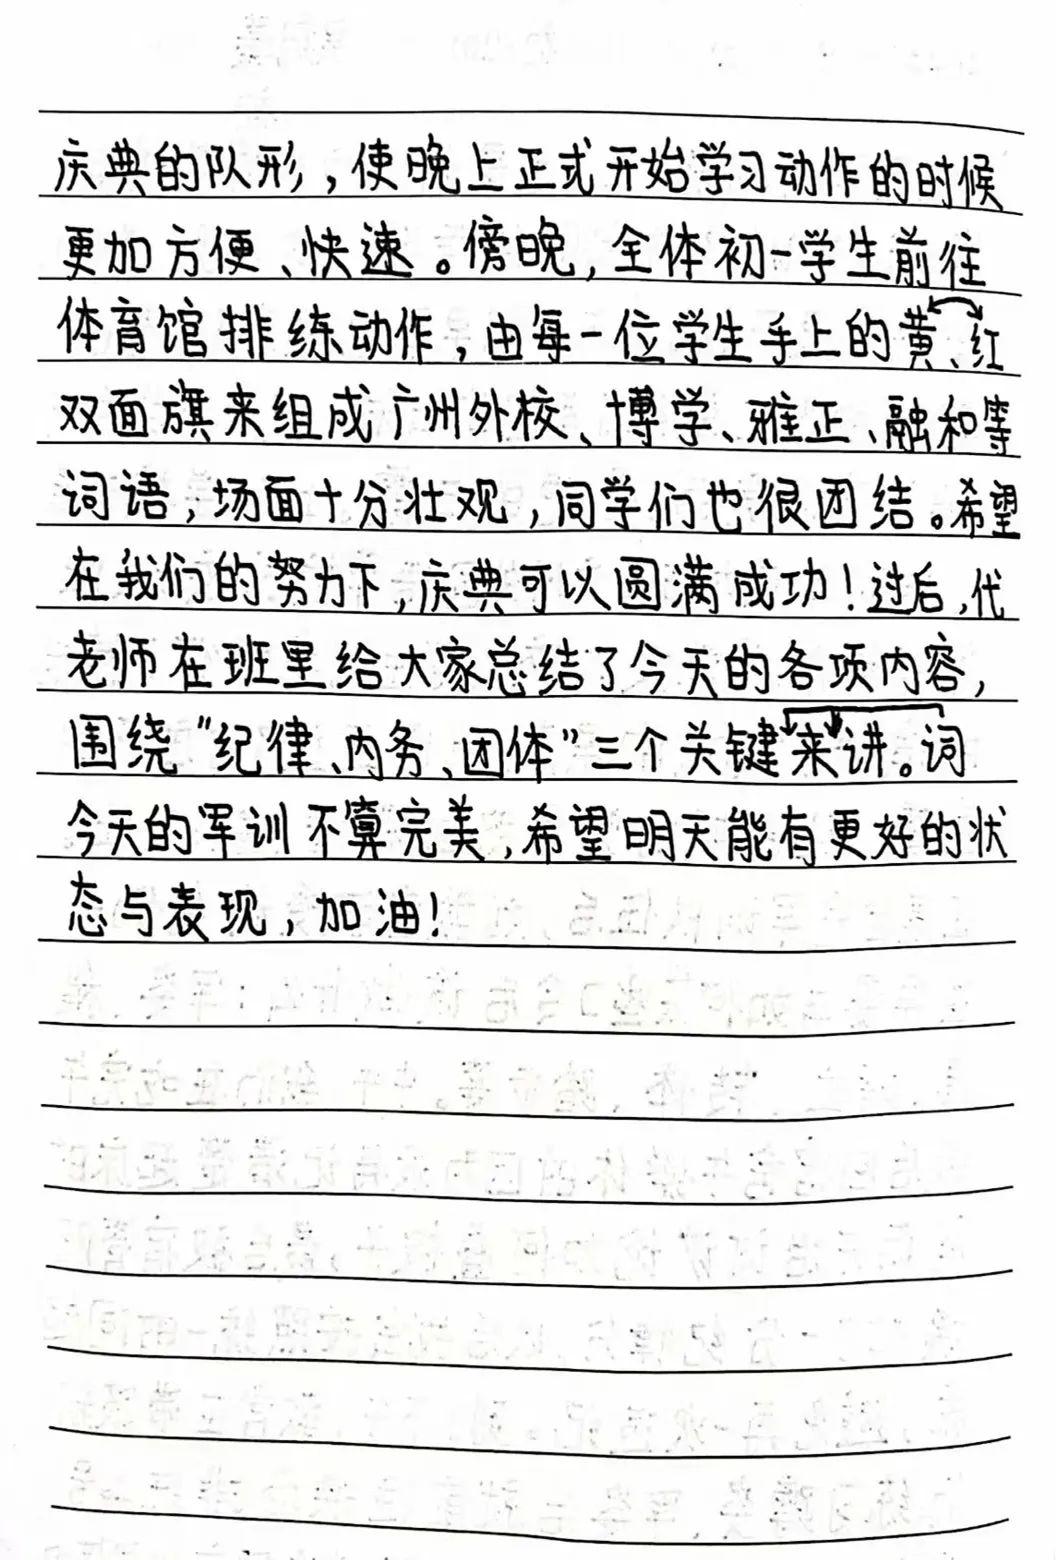 庆典的队形，使晚上正式开始学习动作的时候
更加方便、快速。傍晚，全体初一学生前往
体育馆排练动作，由每一位学生手上的黄、红
双面旗来组成广州外校、博学、雅正、融和等
词语，场面十分壮观，同学们也很团结。希望
在我们的努力下，庆典可以圆满成功！过后，代
老师在班里给大家总结了今天的各项内容，
围绕“纪律、内务、团体”三个关键来讲。词
今天的军训不算完美，希望明天能有更好的状
态与表现，加油！